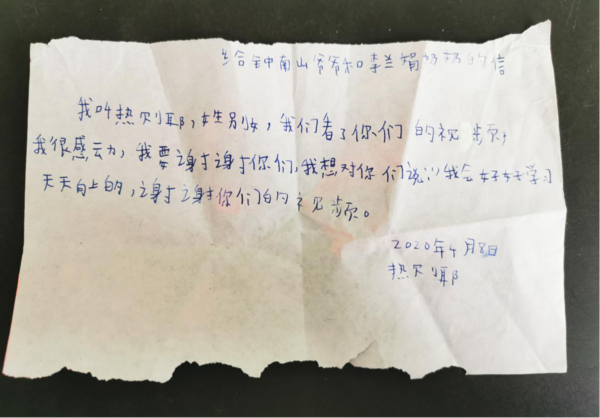 给钟南山爷爷和李兰娟奶奶的信
我叫热尔耶,姓别女,我们看了你们的视频,
我很感动,我要谢谢你们,我想对你们说:“我会好好学习
天天向上的,谢谢你们的视频。
2020年4月8日
热尔耶